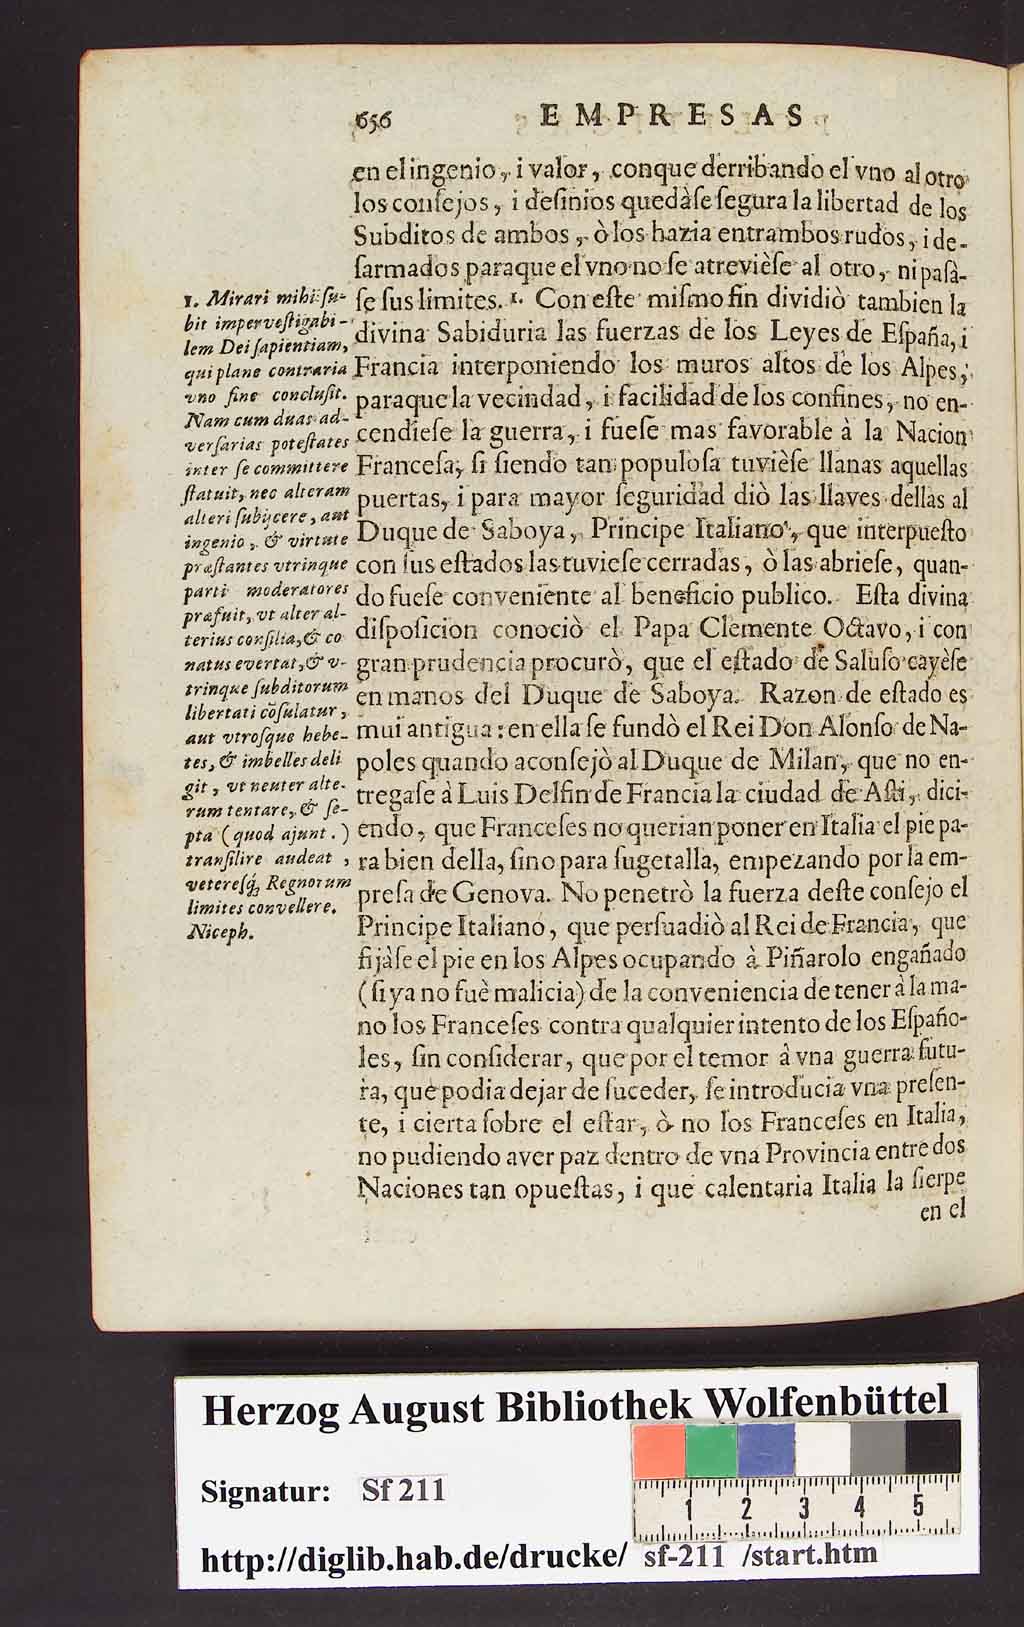 656 EMPRESAS
en el ingenio, i valor, conque derribando el vno al otro
los conſejos, i deſinios quedàſe ſegura la libertad de los
Subditos de ambos, ò los hazia entrambos rudos, i de-
ſarmados paraque el vno no ſe atrevièſe al otro, ni paſà-
ſe ſus limites. 1. Con eſte miſmo fin dividiò tambien la
divina Sabiduria las fuerzas de los Leyes de Eſpaña, i
Francia interponiendo los muros altos de los Alpes,
paraque la vecindad, i facilidad de los confines, no en-
cendieſe la guerra, i fueſe mas favorable à la Nacion
Franceſa, ſi ſiendo tan populoſa tuvièſe llanas aquellas
puertas, i para mayor ſeguridad diò las llaves dellas al
Duque de Saboya, Principe Italiano, que interpueſto
con ſus eſtados las tuvieſe cerradas, ò las abrieſe, quan-
do fueſe conveniente al beneficio publico. Eſta divina
diſpoſicion conociò el Papa Clemente Octavo, i con
gran prudencia procurò, que el eſtado de Saluſo cayèſe
en manos del Duque de Saboya. Razon de eſtado es
mui antigua: en ella ſe fundò el Rei Don Alonſo de Na-
poles quando aconſejò al Duque de Milan, que no en-
tregaſe à Luis Delfin de Francia la ciudad de Aſti, dici-
endo, que Franceſes no querian poner en Italia el pie pa-
ra bien della, ſino para ſugetalla, empezando por la em-
preſa de Genova. No penetrò la fuerza deſte conſejo el
Principe Italiano, que perſuadiò al Rei de Francia, que
fijàſe el pie en los Alpes ocupando à Piñarolo engañado
(ſi ya no fuè malicia) de la conveniencia de tener à la ma-
no los Franceſes contra qualquier intento de los Eſpaño-
les, ſin conſiderar, que por el temor à vna guerra futu-
ra, que podia dejar de ſuceder, ſe introducia vna preſen-
te, i cierta ſobre el eſtar, ò no los Franceſes en Italia,
no pudiendo aver paz dentro de vna Provincia entre dos
Naciones tan opueſtas, i que calentaria Italia la ſierpe
en el
1. Mirari mihi ſu-
bit imperveſtigabi-
lem Dei ſapientiam,
qui plane contraria
vno fine concluſit.
Nam cum duas ad-
verſarias poteſtates
inter ſe committere
ſtatuit, nec alteram
alteri ſubijcere, aut
ingenio, & virtute
præſtantes vtrinque
parti moderatores
præfuit, vt alter al-
terius conſilia, & co
natus evertat, & v-
trinque ſubditorum
libertati cõſulatur,
aut vtroſque hebe-
tes, & imbelles deli
git, vt neuter alte-
rum tentare, & ſe-
pta (quod ajunt.)
tranſilire audeat,
vetereſq́; Regnorum
limites convellere.
Niceph.
Herzog August Bibliothek Wolfenbüttel
1 2 3 4 5
Signatur: Sf 211
http://diglib.hab.de/drucke/ sf-211 /start.htm